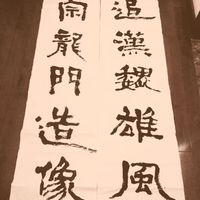 追漢魏雄風
宗龍門造像